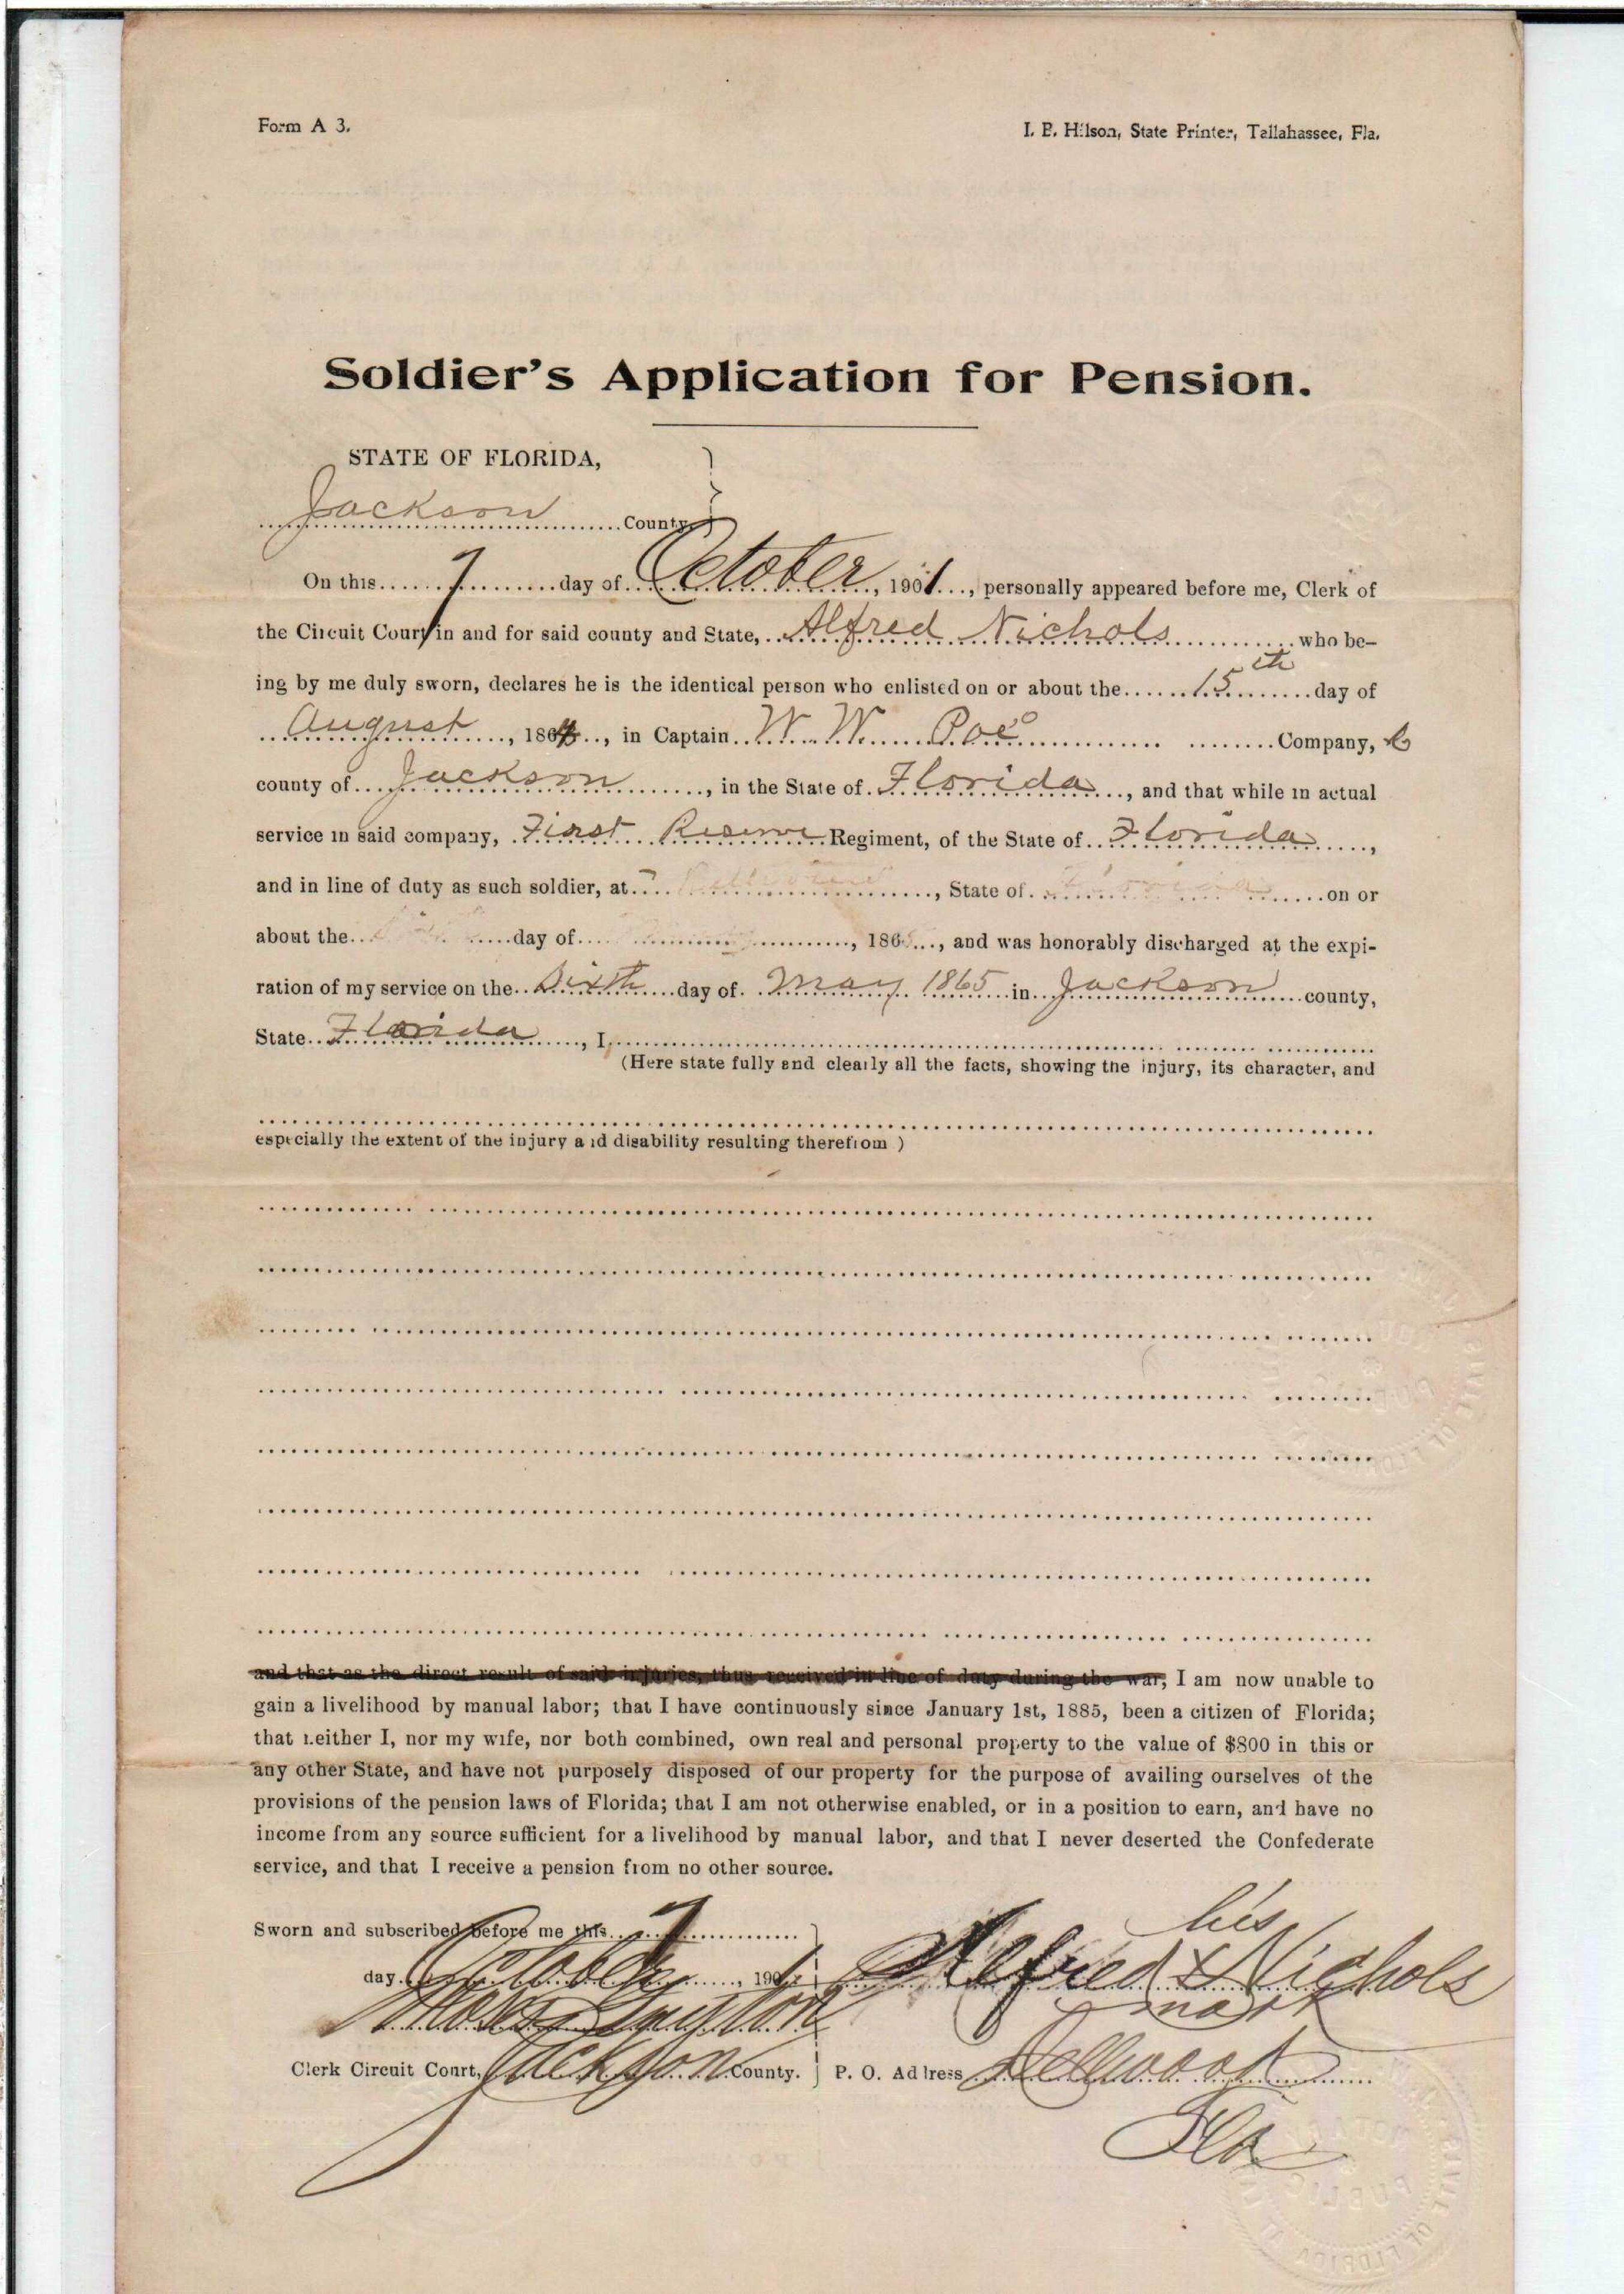 Form A 3.
I. B. Hilson, State Printer, Tallahassee, Fla.
Soldier's Application for Pension.
STATE OF FLORIDA,
Jackson County.
On this 7 day of October, 1901, personally appeared before me, Clerk of
the Circuit Court in and for said county and State, Alfred Nichols who be-
ing by me duly sworn, declares he is the identical person who enlisted on or about the 15th day of
August, 1864, in Captain W. W. Poe Company,
county of Jackson, in the State of Florida, and that while in actual
service in said company, First Reserve Regiment, of the State of Florida,
and in line of duty as such soldier, at, State of Florida on or
about the day of, 186, and was honorably discharged at the expi-
ration of my service on the Sixth day of May 1865 in Jackson county,
State Florida, I
(Here state fully and clearly all the facts, showing the injury, its character, and
especially the extent of the injury and disability resulting therefrom)
and that as the direct result of said injuries, thus received in line of duty during the war, I am now unable to
gain a livelihood by manual labor; that I have continuously since January 1st, 1885, been a citizen of Florida;
that neither I, nor my wife, nor both combined, own real and personal property to the value of $800 in this or
any other State, and have not purposely disposed of our property for the purpose of availing ourselves of the
provisions of the pension laws of Florida; that I am not otherwise enabled, or in a position to earn, and have no
income from any source sufficient for a livelihood by manual labor, and that I never deserted the Confederate
service, and that I receive a pension from no other source.
Sworn and subscribed before me this 7
day October, 1901
his
Alfred X Nichols
mark
Clerk Circuit Court, Jackson County.
P. O. Address Dellwood
Fla